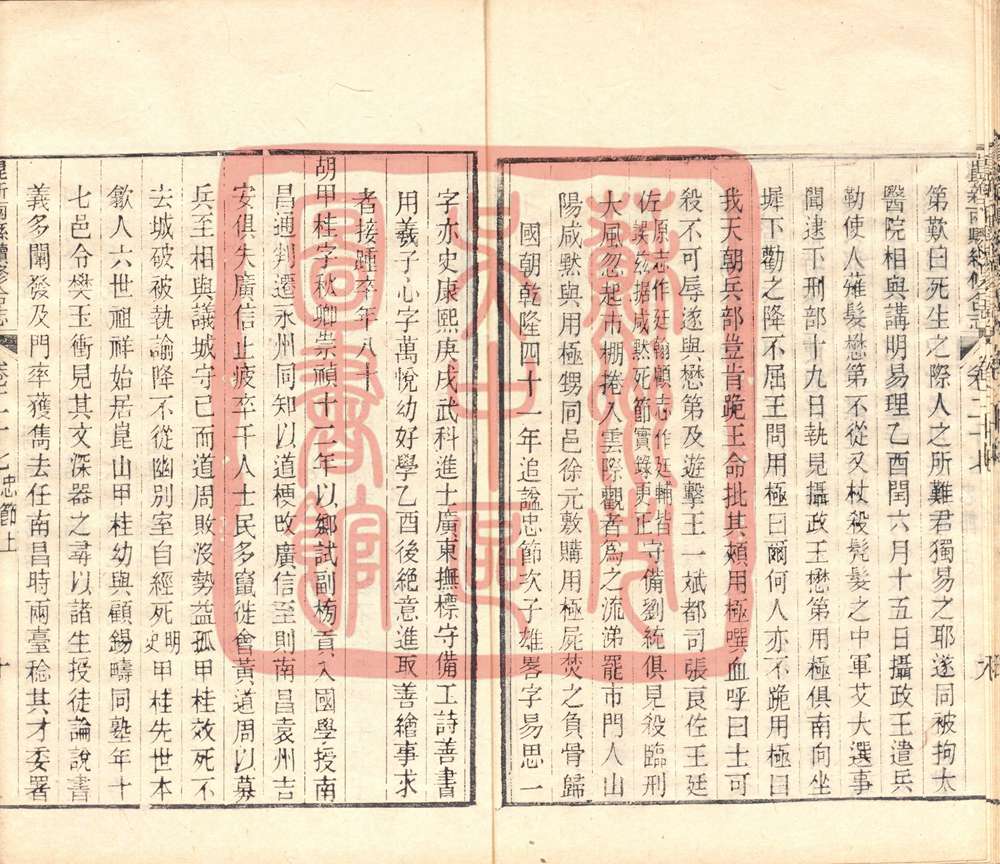 第歎曰死生之際人之所難君獨易之耶遂同被拘太
醫院相與講明易理乙酉閏六月十五日攝政王遣兵
勒使人薙髮懋第不從夾杖殺髡髮之中軍艾大選事
聞逮下刑部十九日執見攝政王懋第用極俱南向坐
墀下勸之降不屈王問用極曰爾何人亦不跪用極曰
我天朝兵部豈肯跪王命批其頰用極噀血呼曰士可
殺不可辱遂與懋第及遊擊王一斌都司張良佐王廷
佐原志作廷翰顧志作廷輔皆誤兹据咸默死節實錄更正守備劉統俱見殺臨刑
大風忽起市棚捲入雲際觀者為之流涕罷市門人山
陽咸默與用極甥同邑徐元敷購用極屍焚之負骨歸
國朝乾隆四十一年追謚忠節次子雄畧字易思一
字亦史康熙庚戌武科進士廣東撫標守備工詩善書
用羲子心字萬悅幼好學乙酉後絕意進取善繪事求
者接踵卒年八十
胡甲桂字秋卿崇禎十二年以鄉試副榜貢入國學授南
昌通判遷永州同知以道梗改廣信至則南昌袁州吉
安俱失廣信止疲卒千人士民多竄徙會黃道周以募
兵至相與議城守已而道周敗沒勢益孤甲桂效死不
去城破被執諭降不從幽別室自經死明史甲桂先世本
歙人六世祖祥始居崑山甲桂幼與顧錫疇同塾年十
七邑令樊玉衡見其文深器之尋以諸生投徒論說書
義多闡發及門率獲雋去任南昌時兩臺稔其才委署
崑新兩縣續修合志 卷二十七 忠節上 十